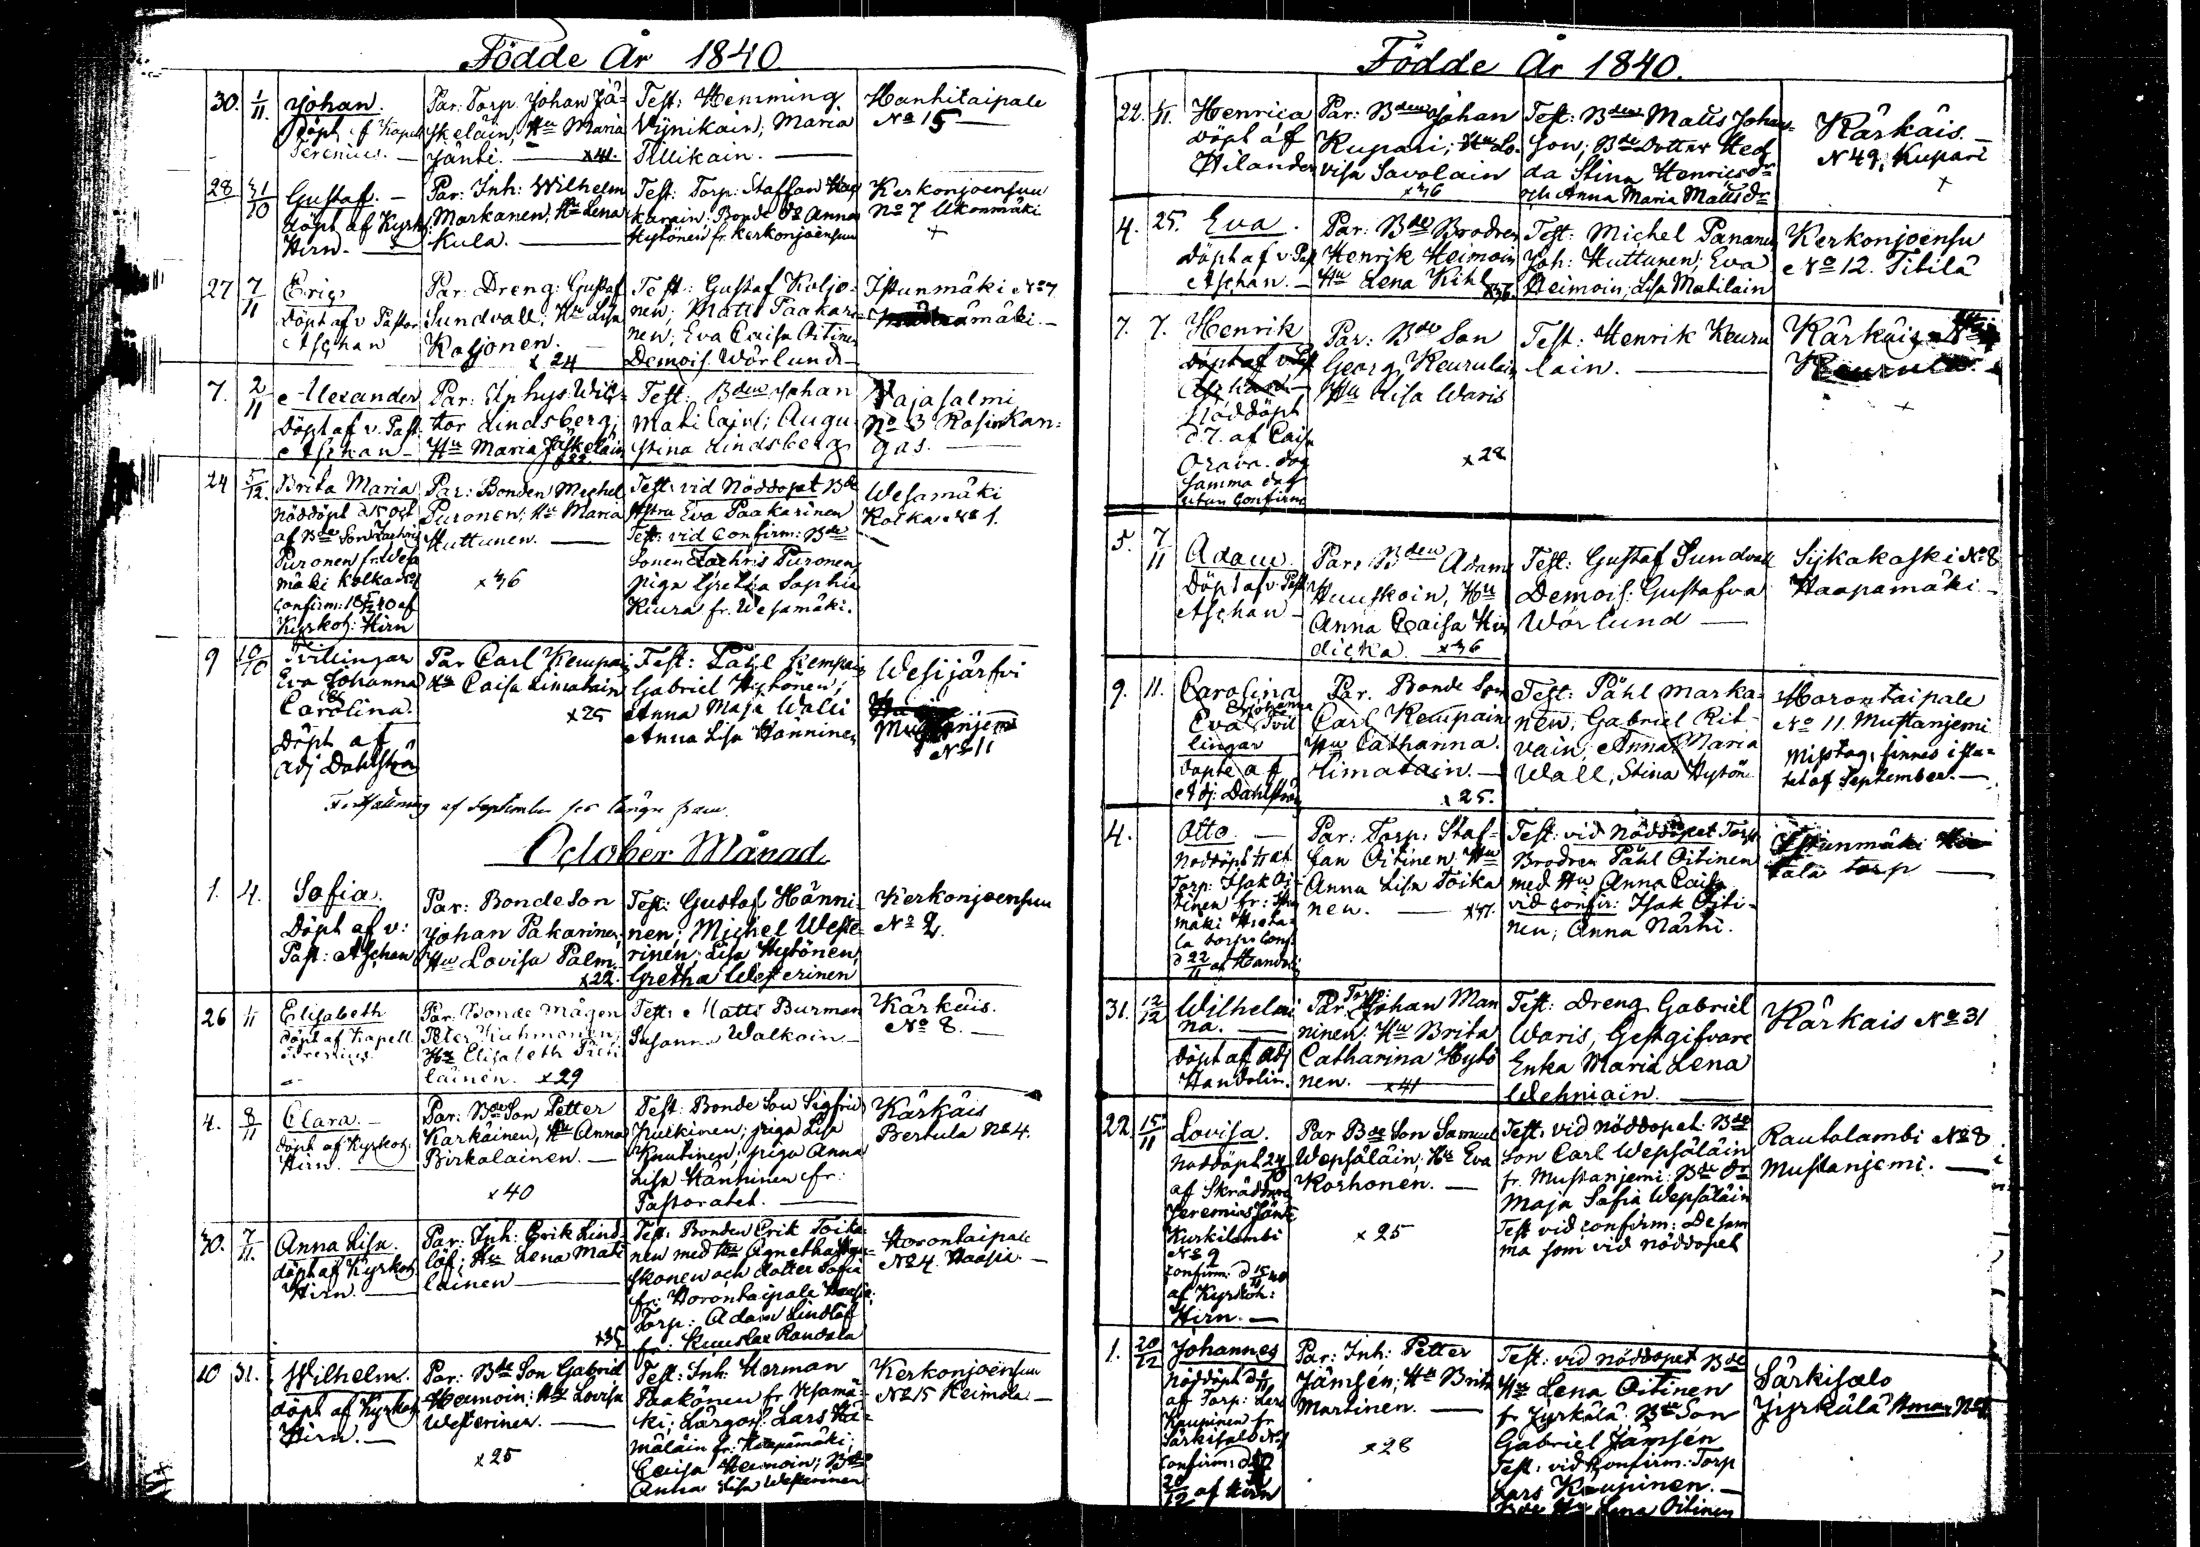 Födde År 1840
30. 1/11. Johan.
Döpt af Kapell
Terenius.
Par: Torp. Johan Jä-
skeläin, Hu Maria
Jänti. x41.
Test: Hemming
Vynikain; Maria
Tillikain.
Hanhitaipale
No 15
28 31/10 Gustaf.
döpt af Kyrkoh:
Hirn.
Par: Inh: Wilhelm
Markanen; Hu Lena
Kula.
Test: Torp: Staffan
Bonde dr Anna
Hytönen fr. Kerkonjoensuu
Kerkonjoensuu
No 7 Ukonmäki
+
27 7/11 Eric
Döpt af v Pastor
Aschan
Par: Dreng: Gustaf
Sundvall; Hu Lisa
Koljonen.
x 24
Test: Gustaf Koljo-
nen; Matts Paakari-
nen; Eva Caisa Oitinen
Demois. Wörlund
Istunmäki No 7
7. 2/11 Alexander
Döpt af v. Past.
Aschan
Par: Wic-
tor Lindsberg;
Hu Maria Jäskeläin
x22.
Test: Bden Johan
Matilain; Augu-
stina Lindsberg
Vajasalmi
No 3 Rosin Kan-
gas.
24 5/12. Brita Maria
Nöddöpt d 15 Oct
af Bde Son Zachris
Puronen fr. Wesa
mäki Kolka No 1
confirm: 18 5/12 40 af
Kyrkoh: Hirn
Par: Bonden Michel
Puronen; Hu Maria
Huttunen.
x36
Test: vid Nöddopet Bde
Hstru Eva Paakarinen
Test: vid Confirm: Bde
Sonen Zachris Puronen
Piga Gretha Sophia
Kiura fr. Wesamäki.
Wesamäki
Kolka No 1.
9 10/10 Tvillingar
Eva Johanna
&
Carolina.
Döpt af
Adj Dahlström
Par Carl Kempain
Hu Caisa Limatain
x25
Test: Påhl Kempain
Gabriel Hytönen;
Anna Maja Walli
Anna Lisa Hänninen
Wesijärfvi
No 11
Fortsättning af September
October Månad
1. 4. Sofia.
Döpt af v:
Past: Aschan
Par: Bonde Son
Johan Pakarinen
Hu Lovisa Palm.
x22.
Test: Gustaf Hänni-
nen; Michel Weste-
rinen; Lisa Hytönen;
Gretha Westerinen
Kerkonjoensuu
No 2.
26 1/11 Elisabeth
döpt af Kapell
Terenius.
Par: Bonde Mågen
Peter Kuhmonen;
Hu Elisabeth
lainen. x29
Test: Matts Burman
Susanna Walkoin
Kärkäis.
No 8.
4. 8/11 Clara.
döpt af Kyrkoh:
Hirn.
Par: Bde Son Petter
Karkäinen, Hu Anna
Birkolainen.
x40
Test: Bonde Son Sigfrid
Julkinen; piga Lisa
Knutinen; piga Anna
Lisa Hänninen fr:
Pastoratet.
Kärkäis
Bertula No 4.
30. 7/11. Anna Lisa.
döpt af Kyrkoh
Hirn.
Par: Inh: Erik Lind-
löf; Hu Lena Mati
lainen
x35
Test: Bonden Erik Toika-
nen med Hu Agnetha
skonen och dotter Sofia
fr: Horontaipale Haasia;
Torp: Adam Lindlöf
fr: Kuuslax Randala
Horontaipale
No 4 Haasia
10 31. Wilhelm.
döpt af Kyrkoh
Hirn.
Par: Bde Son Gabriel
Heimoin; Hu Lovisa
Westerinen.
x25
Test: Inh: Herman
Paakönen fr. Wesamä-
ki; Lars Hä-
mäläin fr: Haapamäki;
Caisa Heimoin; Bde
Anna Lisa Westerinen
Kerkonjoensuu
No 15 Heimola
Födde År 1840.
22. 1/11. Henrica
Döpt af
Hilander
Par: Bden Johan
Kupari; Hu Lo-
visa Savolain
x36
Test: Bden Matts Johans-
son; Bde Dotter Hed-
da Stina Henricsdr
och Anna Maria Mattsdr
Kärkäis.
No 49, Kupari
+
4. 25. Eva.
Döpt af v. Past
Aschan.
Par: Bde Brodren
Henrik Heimoin
Hu Lena Kihl
x36.
Test: Michel Pananen
Joh: Huttunen; Eva
Heimoin; Lisa Matilain
Kerkonjoensu
No 12. Titilä
7. 7. Henrik
Döpt af v. Past
Aschan
Nöddöpt
d 7. af Caisa
Orava. dog
samma dag
utan confirma
Par: Bde Son
Georg Keurulain
Hu Lisa Waris
x28
Test: Henrik Keuru
lain.
Kärkäis
+
5. 7/11 Adam
Döpt af v. Past
Aschan
Par: Bden Adam
Huuskoin, Hu
Anna Caisa Hin
dicka. x36
Test: Gustaf Sundvall
Demois: Gustafva
Wörlund
Sijkakoski No 8
Haapamäki.
9. 11. Carolina
Eva Johanna Tvil
lingar
döpte af
Adj: Dahlström
Par. Bonde Son
Carl Kempain
Hu Catharina.
Limatain.
x25.
Test: Påhl Marka-
nen, Gabriel Rit-
vain; Anna Maria
Wall, Stina Hytön
Horontaipale
No 11. Mustanjemi
Misstag; finnes i slu-
tet af September.
4. Otto.
Nöddöpt 4/11 af
Torp: Isak Oi-
tinen fr: Istun
mäki Hieta-
la torp: Conf:
d 22/11 af Handolin
Par: Torp: Staf-
fan Oitinen Hu
Anna Lisa Toika
nen. x41.
Test: vid Nöddopet Torp
Brodren Påhl Oitinen
med Hu Anna Caisa
vid confir: Isak Oiti-
nen; Anna Närhi.
Istunmäki Hie
tala torp
31. 12/12 Wilhelmi
na.
Döpt af Adj
Handolin.
Par: Torp: Johan Man
ninen. Hu Brita
Catharina Hytö
nen. x41
Test: Dreng Gabriel
Waris, Gestgifvare
Enka Maria Lena
Wehniain.
Kärkais No 31
22 15/11 Lovisa.
Nöddöpt 24/10
af Skräddare
Jeremias Jänti
Kurkilambi
No 9
Confirm: d 15/11 40
af Kyrkoh:
Hirn.
Par Bde Son Samuel
Wepsäläin; Hu Eva
Korhonen.
x25
Test: vid nöddopet: Bde
Son Carl Wepsäläin
fr. Mustanjemi: Bde dr
Maja Sofia Wepsäläin
Test vid confirm: De sam
ma som vid nöddopet
Rautalambi No 8
Mustanjemi.
1. 20/12 Johannes
Nöddöpt d
af Torp: Lars
Kaupinen fr
Särkisalo
Confirm: d
20/12 af Hirn
Par: Inh: Petter
Jämsén; Hu Brita
Martinen.
x28
Test: vid nöddopet Bde
Hu Lena Oitinen
fr Jyrkälä. Bde Son
Gabriel Jämsén
Test: vid Confirm: Torp
Lars Kaupinen.
Bde Hu Lena Oitinen
Särkisalo
Jyrkälä